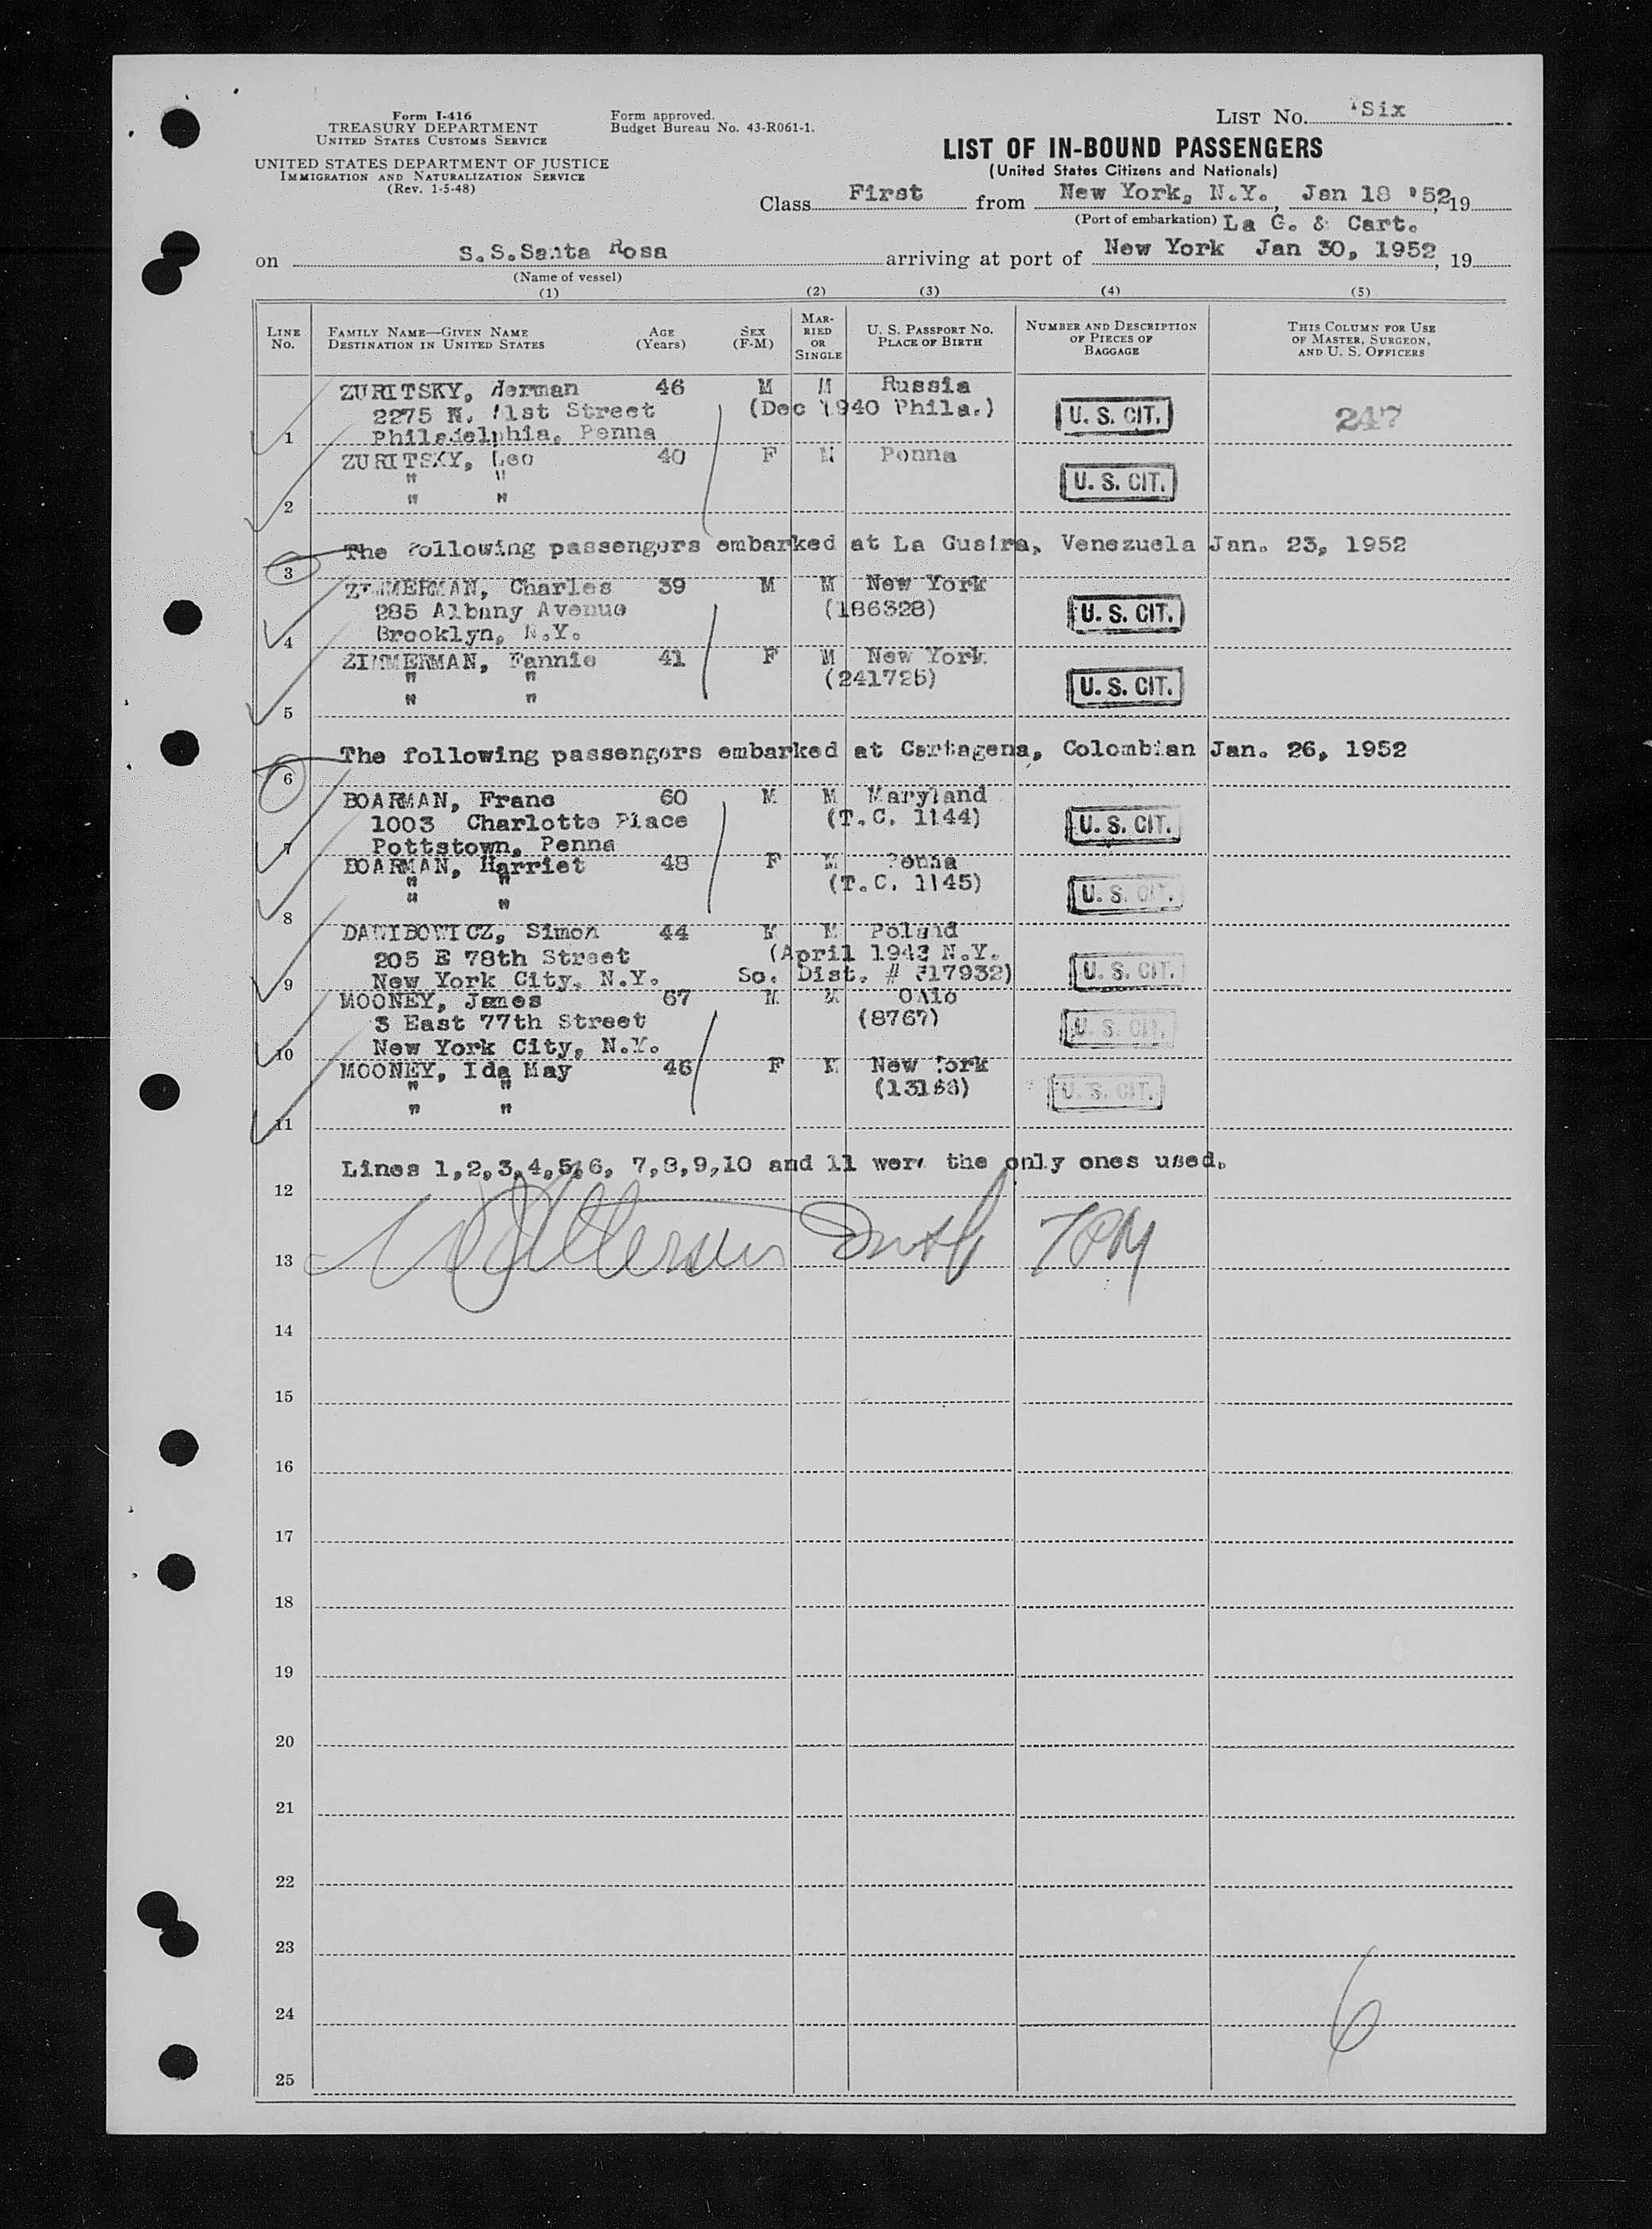 Form I-416
TREASURY DEPARTMENT
UNITED STATES CUSTOMS SERVICE
UNITED STATES DEPARTMENT OF JUSTICE
IMMIGRATION AND NATURALIZATION SERVICE
(Rev. 1-5-48)
Form approved.
Budget Bureau No. 43-R061-1.
LIST NO. Six
LIST OF IN-BOUND PASSENGERS
(United States Citizens and Nationals)
Class First from New York, N.Y., Jan 18 '52, 19
(Port of embarkation) La G. & Cart.
on S.S.Santa Rosa arriving at port of New York Jan 30, 1952, 19
(Name of vessel)
(1) (2) (3) (4) (5)
LINE NO.
FAMILY NAME—GIVEN NAME
DESTINATION IN UNITED STATES
AGE (Years)
SEX (F-M)
MARRIED OR SINGLE
U. S. PASSPORT NO.
PLACE OF BIRTH
NUMBER AND DESCRIPTION OF PIECES OF BAGGAGE
THIS COLUMN FOR USE OF MASTER, SURGEON, AND U. S. OFFICERS
ZURITSKY, Herman 46 M M Russia
2275 N. 51st Street (Dec 1940 Phila.) U. S. CIT. 247
1 Philadelphia, Penna
ZURITSKY, Leo 40 F M Penna
" " U. S. CIT.
" "
2
3 The following passengers embarked at La Guaira, Venezuela Jan. 23, 1952
ZIMMERMAN, Charles 39 M M New York
285 Albany Avenue (186328) U. S. CIT.
4 Brooklyn, N.Y.
ZIMMERMAN, Fannie 41 F M New York
" " (241725) U. S. CIT.
" "
5
6 The following passengers embarked at Cartagena, Colombian Jan. 26, 1952
BOARMAN, Franc 60 M M Maryland
1003 Charlotte Place (T.C. 1144) U. S. CIT.
7 Pottstown, Penna
BOARMAN, Harriet 48 F M Penna
" " (T.C. 1145) U. S. CIT.
" "
8
DAWIBOWICZ, Simon 44 M M Poland
205 E 78th Street (April 1943 N.Y.
9 New York City, N.Y. So. Dist. # 17932) U. S. CIT.
MOONEY, James 67 M M Ohio
3 East 77th Street (8767) U. S. CIT.
10 New York City, N.Y.
MOONEY, Ida May 46 F M New York
" " U. S. CIT.
" "
11
12 Lines 1,2,3,4,5,6, 7,8,9,10 and 11 were the only ones used.
13
14
15
16
17
18
19
20
21
22
23
24
25
6